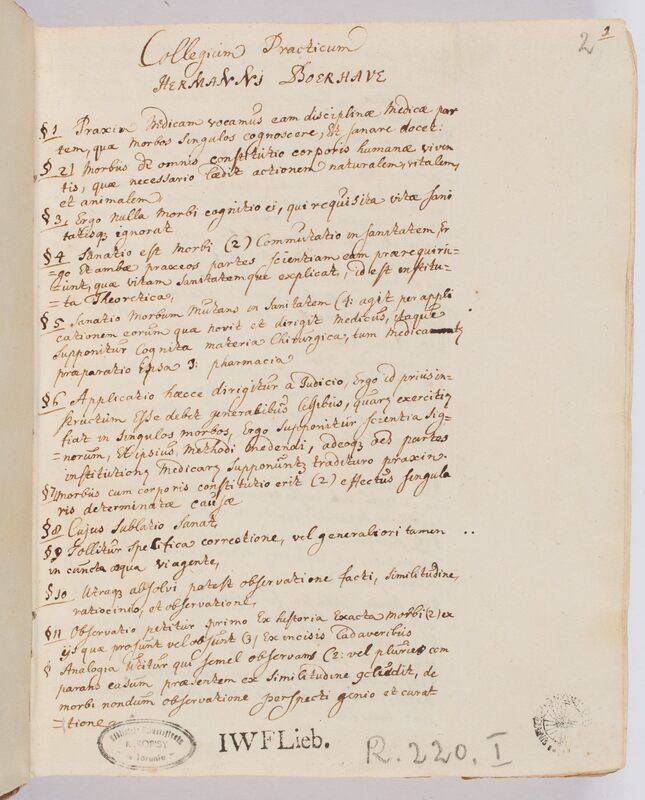 2 1
Collegium Practicum
HERMANNI BOERHAVE
§1 Praxin Medicam vocamus eam disciplinæ Medicæ par
tem, quæ morbos singulos cognoscere, Et sanare docet:
§ 2. Morbus omnis constitutio corporis humanæ viven
tis, quæ necessario lædit actionem naturalem, vitalem,
et animalem.
§ 3. Ergo nulla morbi cognitio ei, qui requisita vitæ sani
tatisq ignorat
§4 Sanatio est morbi (2) Commutatio in sanitatem, Er
go Et ambæ praxeos partes scientiam eam prærequiru-
=unt, quæ vitam sanitatemque explicat, id est institu-
=ta Theoretica,
§ 5 Sanatio Morbum Mutans in Sanitatem (4: agit per appli
cationem eorum quæ novit et dirigit medicus, itaque
supponitur Cognita materia Chirurgica, tum medica
præparatio Ipsa 3: pharmacia
§6 Applicatio hæcce dirigitur a Judicio, Ergo id prius in=
structum Esse debet generalibus quarum exercitiū
fiat in singulos morbos, Ergo supponitur scientia sig=
=norum, Et ipsius Methodi medendi, adeoq oes partes
institutionū Medicarū supponuntr tradituro praxin.
§7 morbus cum corporis constitutio erit (2) effectus singula
ris determinatæ causæ
§8 Cujus Sublatio Sanat,
§9 Tollitur specifica correctione, vel generaliori tamen
in cuncta æqua vi agente,
§10 Utraq absolvi potest observatione facti, similitudine,
ratiocindo, et observatione,
§11 Observatio petitur primo Ex historia Exacta morbi (2) ex
ijs quæ prosunt vel obsunt (3) Ex incisis Cadaveribus
§ Analogia Utitur qui semel observans (2: vel pluries com
parans casum præsentem ex similitudine de
morbi nondum observatione perspecti genio et curat
=tione
RĘKOPISY
w Toruniu
IWFLieb.
R. 220. I